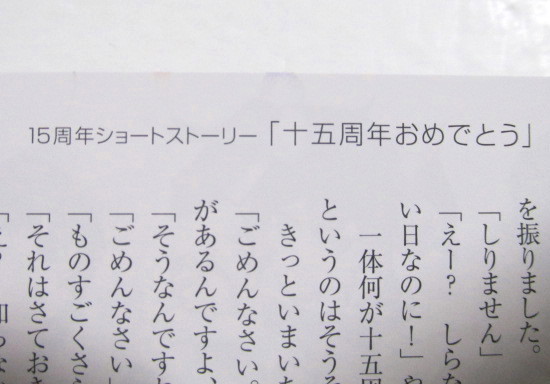 15周年ショートストーリー「十五周年おめでとう」
を振りました。
「しりません」
「えー? しらな
い日なのに!」や
一体何が十五回
というのはそうそ
きっといまいち
「ごめんなさい。
があるんですよ、
「そうなんですね
「ごめんなさい」
「ものすごくさら
「それはさておき